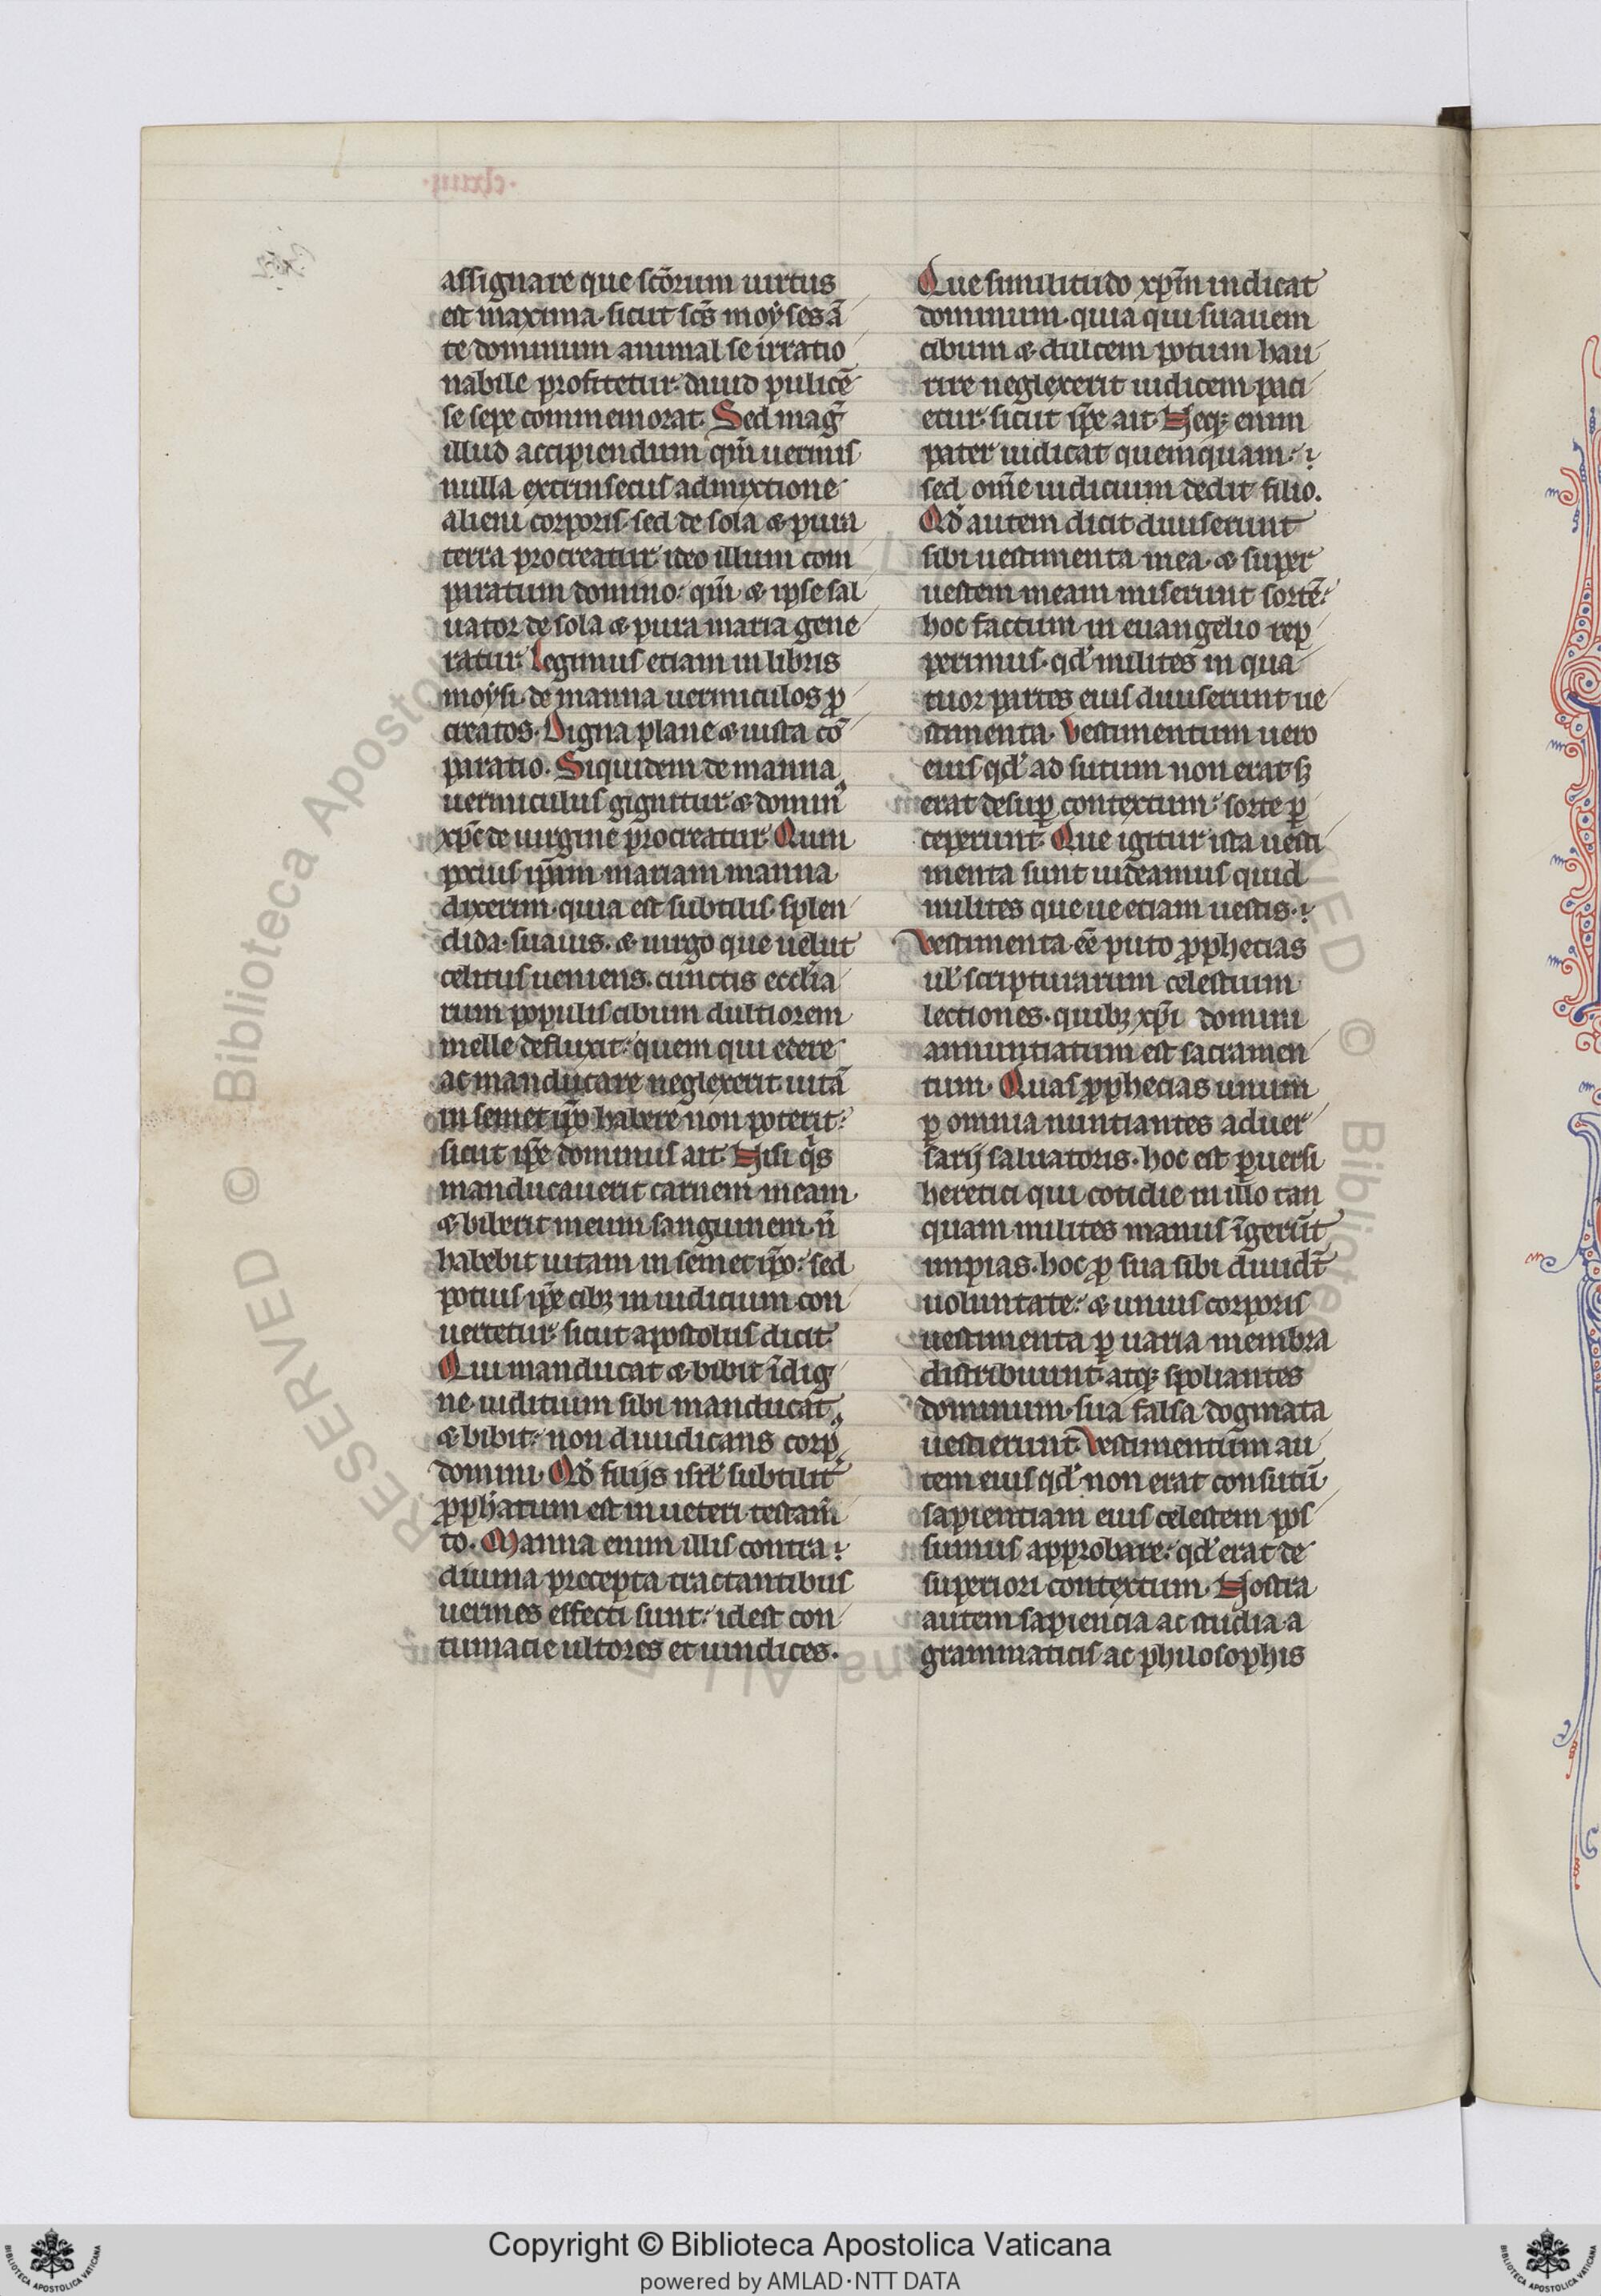 assignare que sc̄orum uirtus
est maxima. sicut sc̄s moẏses ā
te dominum animal se irratio
nabile profitetur. dauid pulicē
se sepe commemorat. Sed mag̃
illud accipiendum qm̄ uermis
nulla extrinsecus admixtione
alieni corporis. sed de sola & pura
terra procreatur. ideo illum com
paratum domino. qm̄ & ipse sal
uator de sola & pura maria gene
ratur. Legimus etiam in libris
moẏsi. de manna uermiculos ꝓ
creatos. Digna plane & iusta cō
paratio. Siquidem de manna
uermiculus gignitur. & domin᾽
xp̄c de uirgine procreatur. Quin
pocius ip̄am mariam manna
dixerim. quia est subtilis. splen
dida. suauis. & uirgo que uelut
celitus ueniens. cunctis eccl̄ia
rum populis cibum dultiorem
melle defluxit. quem qui edere
ac manducare neglexerit. uitā
in semet ip̄o habere non poterit.
sicut ip̄e dominus ait. Nisi q̇s
manducauerit carnem meam
& biberit meum sanguinem. n̄
habebit uitam in semet ip̄o. sed
potius ip̄e cibꝫ in iudicium con
uertetur. sicut apostolus dicit.
Qui manducat & bibit īdig
ne. iuditium sibi manducat
& bibit. non diiudicans corp᾽
domini. Qd̄ filijs isrł subtilit᾽
ꝓph̄atum est in ueteri testam̄
to. Manna enim illis contra
diuina precepta tractantibus
uermes effecti sunt. idest con
tumacie ultores et uindices.
Que similitudo xp̄m indicat
dominum. quia qui suauem
cibum & dulcem potum hau
rire neglexerit iudicem paci
etur. sicut ip̄e ait. Neqꝫ enim
pater iudicat quemquam.
sed om̄e iudicium dedit filio.
Qd̄ autem dicit diuiserunt
sibi uestimenta mea. & super
uestem meam miserunt sortē.
hoc factum in euangelio rep
perimus. qd᾽ milites in qua
tuor partes eius diuiserunt ue
stimenta. Vestimentum uero
eius qd᾽ ad sutum non erat sꝫ
erat desuꝑ contextum. sorte ꝑ
ceperunt. Que igitur ista uesti
menta sunt uideamus quid
milites que ue etiam uestis.
Vestimenta eē puto ꝓphecias
uł scripturarum celestium
lectiones. quibꝫ xp̄i domini
annuntiatum est sacramen
tum. Quas ꝓphecias unum
ꝑ omnia nuntiantes aduer
sarij saluatoris. hoc est ꝑuersi
heretici qui cotidie in illo tan
quam milites manus īgerūt
impias. hoc ꝓ sua sibi diuidt̄
uoluntate. & unius corporis
uestimenta ꝑ uaria membra
distribuunt. atqꝫ spoliantes
dominum. sua falsa dogmata
uestierunt. Vestimentum au
tem eius qd᾽ non erat consutū
sapientiam eius celestem pos
sumus approbare. qd᾽ erat de
superiori contextum. Nostra
autem sapiencia ac studia a
grammaticis ac philosophis
Copyright © Biblioteca Apostolica Vaticana
powered by AMLAD·NTT DATA